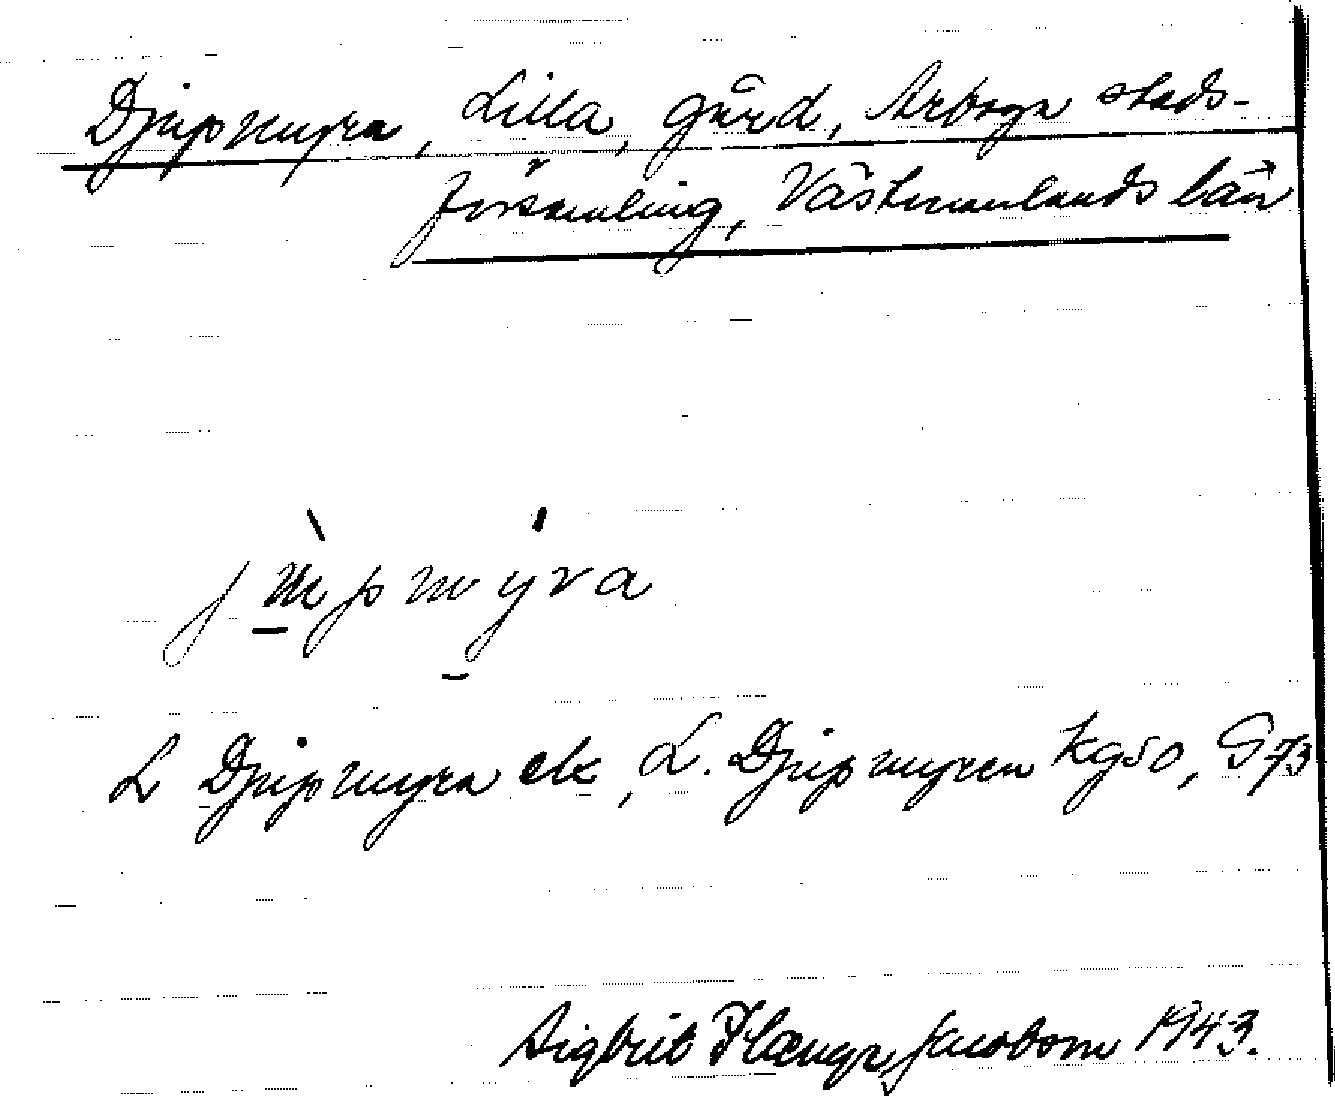 Djupmyra, Lilla, gård, Arboga stads-
församling, Västmanlands län
jùpmýra
L Djupmyra ek, L. Djupmyren kg50, G73
Sigbrit Plænge Jacobson 1943.